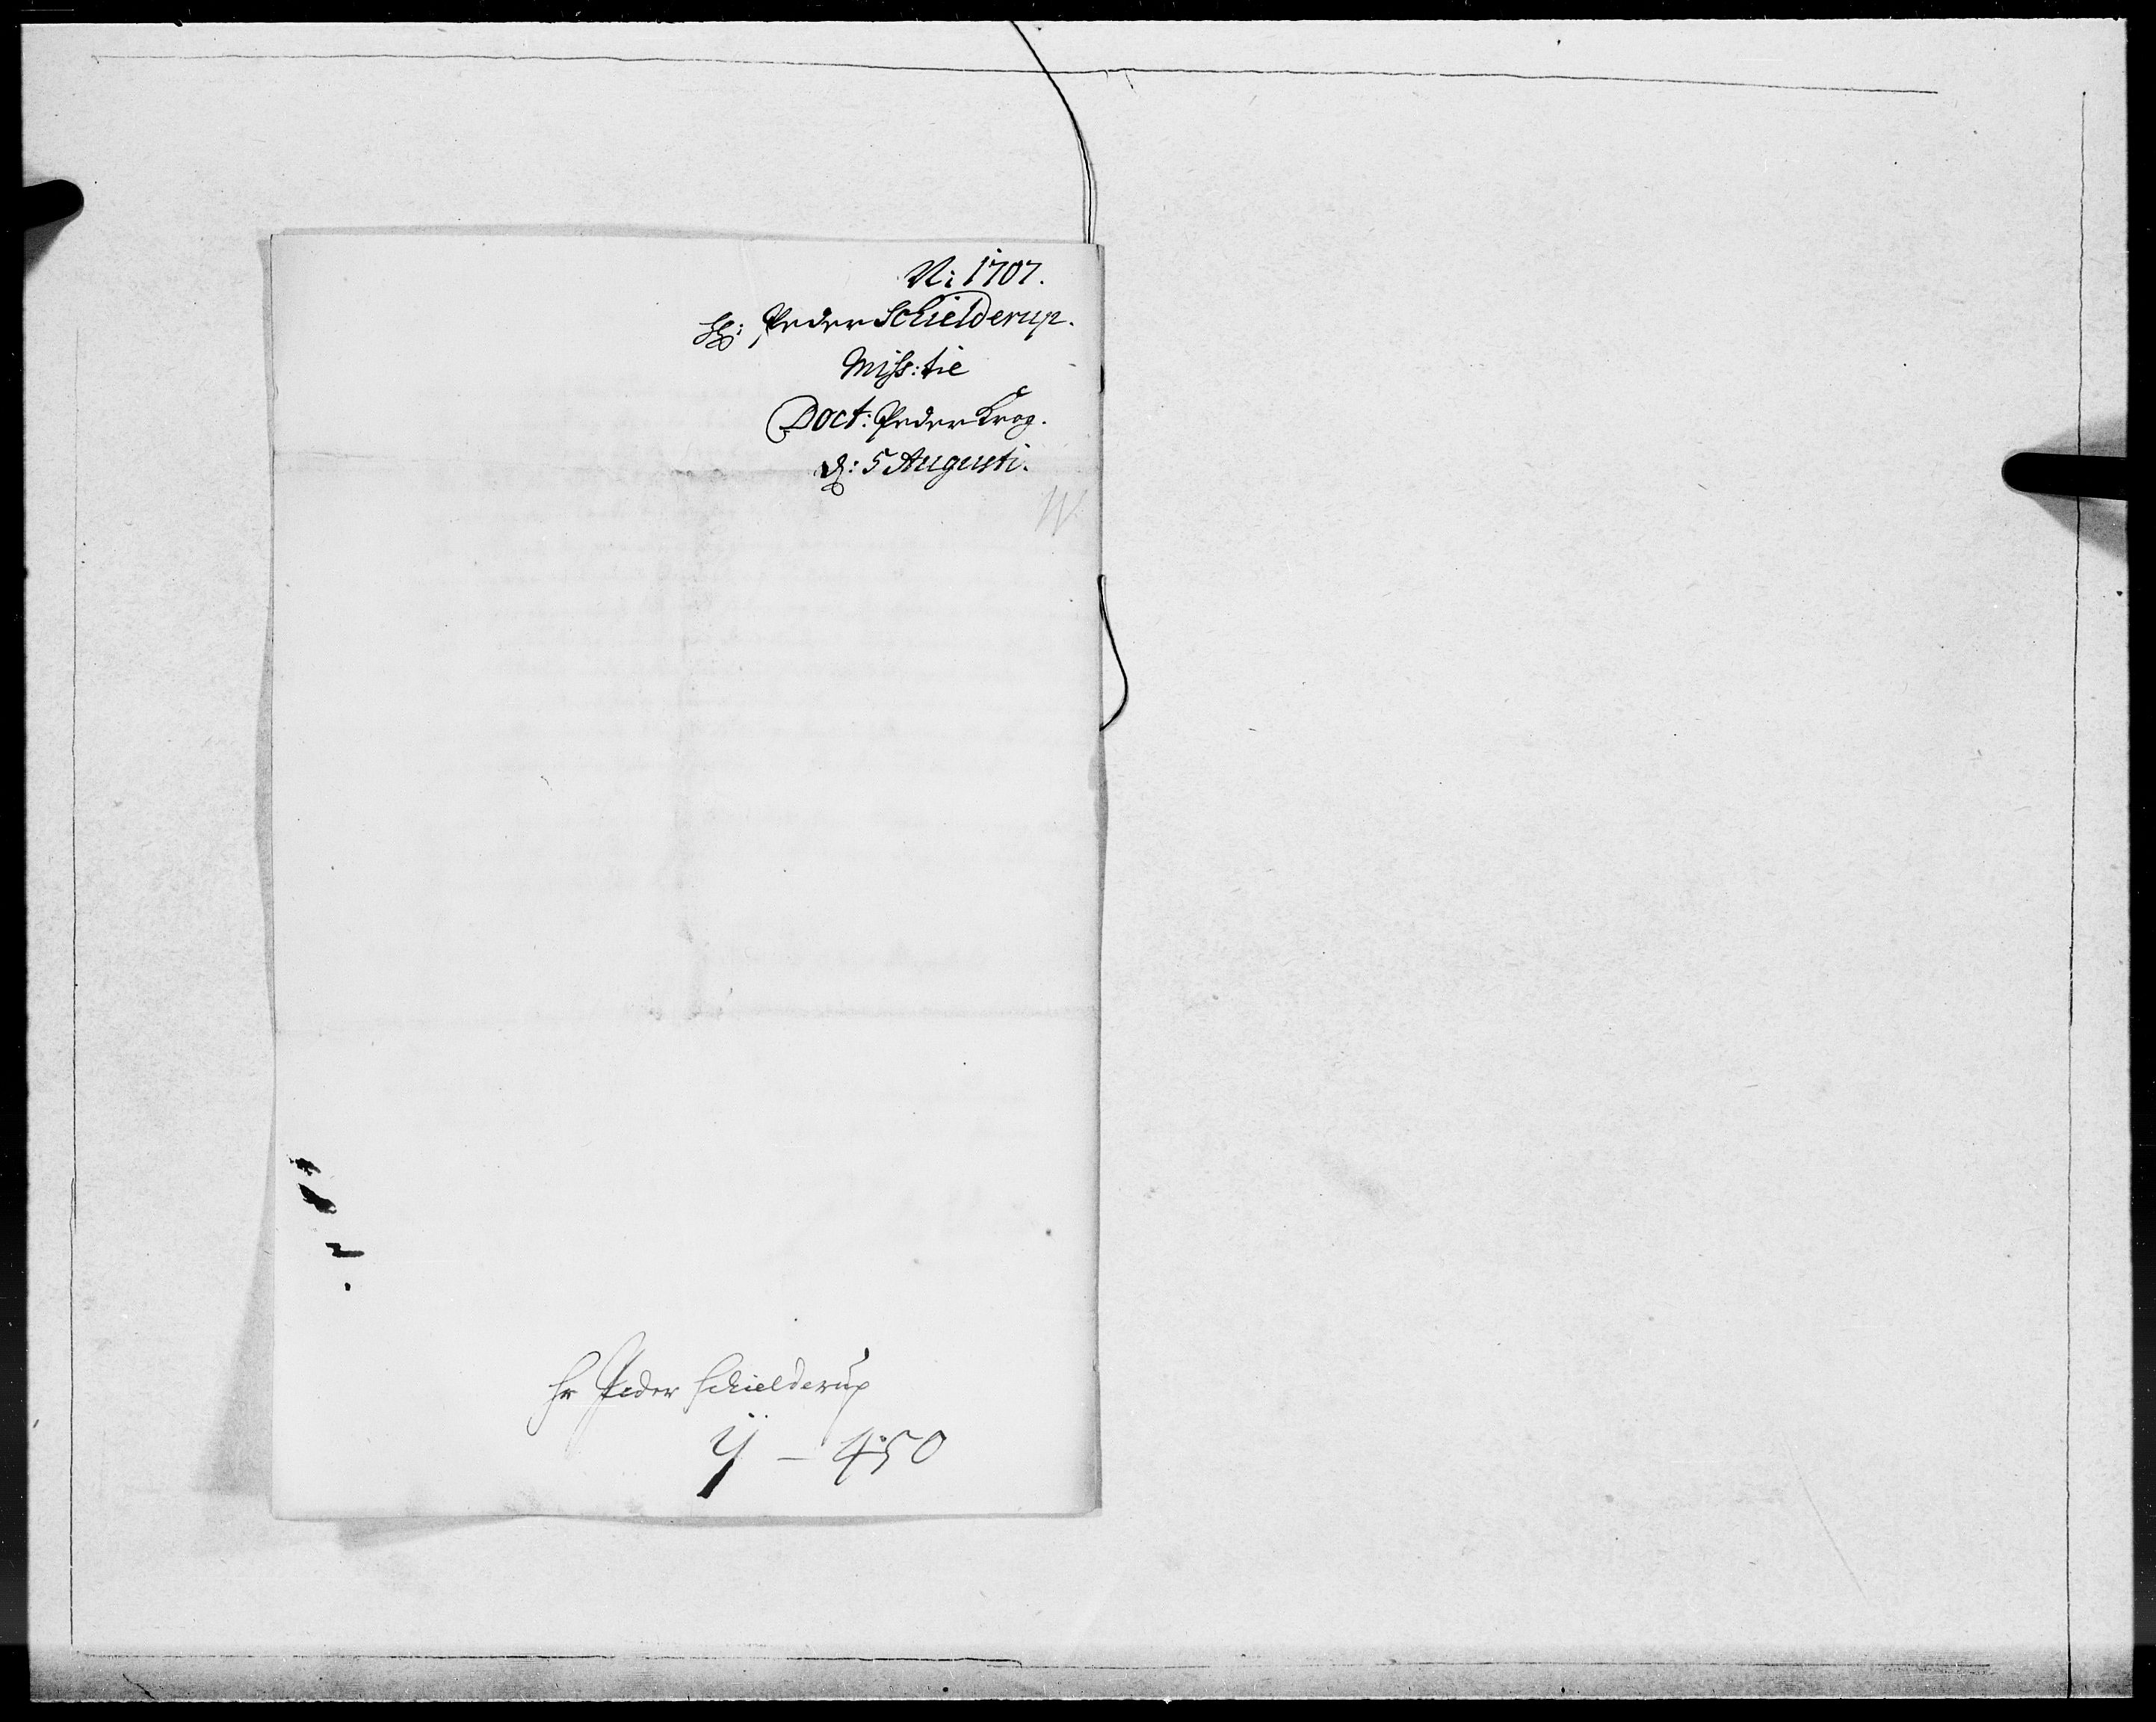 N: 1707.
Hr: Peder Schielderup.
Miss: tie
Doct: Peder Krog.
d: 5 Augusti.
Hr Peder Schielderup
4 – 450